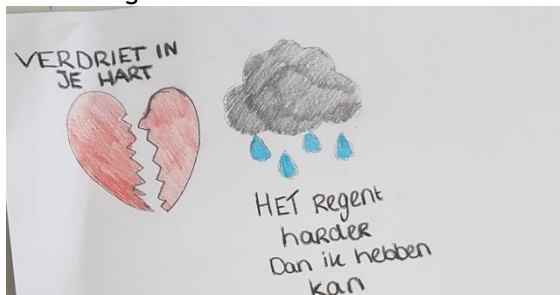 VERDRIET IN
JE HART
HET Regent
harder
Dan ik hebben
kan